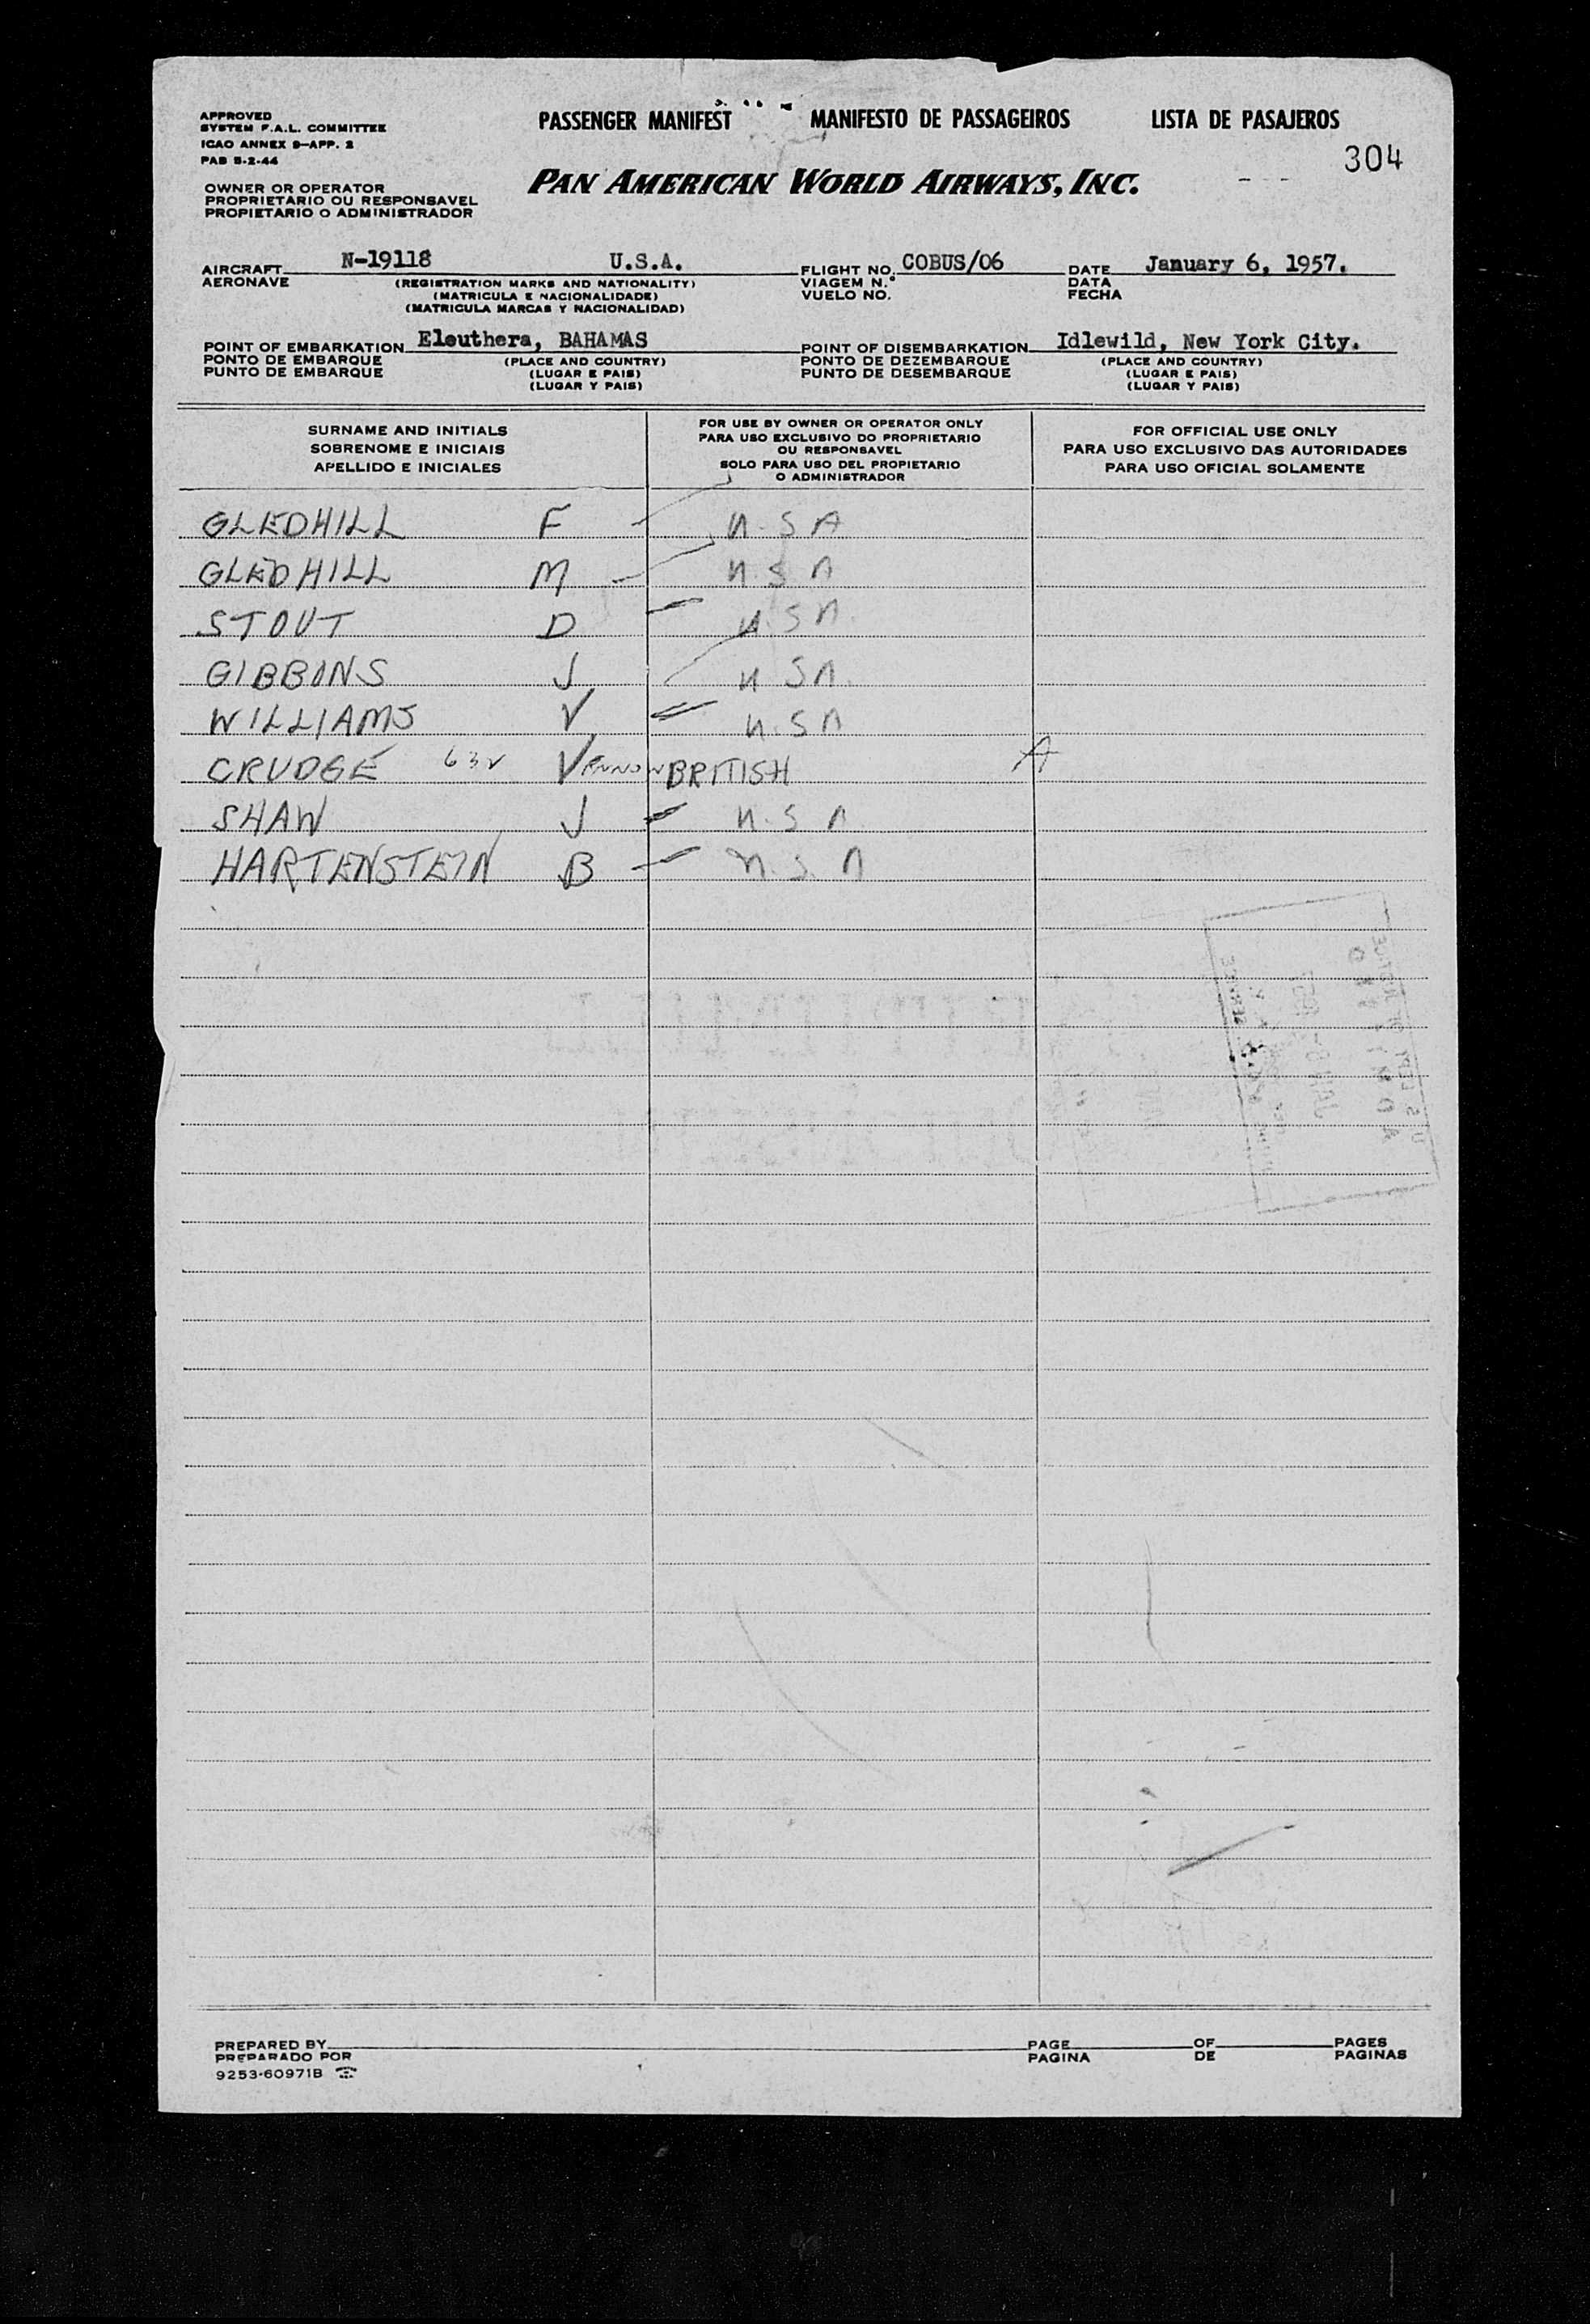 APPROVED
SYSTEM F.A.L. COMMITTEE
ICAO ANNEX 9—APP. 2
PAB 5-2-44
PASSENGER MANIFEST MANIFESTO DE PASSAGEIROS LISTA DE PASAJEROS
304
PAN AMERICAN WORLD AIRWAYS, INC.
OWNER OR OPERATOR
PROPRIETARIO OU RESPONSAVEL
PROPIETARIO O ADMINISTRADOR
AIRCRAFT N-19118 U.S.A. FLIGHT NO. COBUS/06 DATE January 6, 1957.
AERONAVE (REGISTRATION MARKS AND NATIONALITY) VIAGEM N.° DATA
(MATRICULA E NACIONALIDADE) VUELO NO. FECHA
(MATRICULA MARCAS Y NACIONALIDAD)
POINT OF EMBARKATION Eleuthera, BAHAMAS POINT OF DISEMBARKATION Idlewild, New York City.
PONTO DE EMBARQUE (PLACE AND COUNTRY) PONTO DE DEZEMBARQUE (PLACE AND COUNTRY)
PUNTO DE EMBARQUE (LUGAR E PAIS) PUNTO DE DESEMBARQUE (LUGAR E PAIS)
(LUGAR Y PAIS) (LUGAR Y PAIS)
SURNAME AND INITIALS
SOBRENOME E INICIAIS
APELLIDO E INICIALES
FOR USE BY OWNER OR OPERATOR ONLY
PARA USO EXCLUSIVO DO PROPRIETARIO
OU RESPONSAVEL
SOLO PARA USO DEL PROPIETARIO
O ADMINISTRADOR
FOR OFFICIAL USE ONLY
PARA USO EXCLUSIVO DAS AUTORIDADES
PARA USO OFICIAL SOLAMENTE
GLEDHILL F U.S A
GLEDHILL M U.S A
STOUT D U.S A.
GIBBONS J U SA.
WILLIAMS V U.S A
CRUDGE 63V V BRITISH A
SHAW J U.S A.
HARTENSTEIN B U.S. A
PREPARED BY PAGE OF PAGES
PREPARADO POR PAGINA DE PAGINAS
9253-60971B